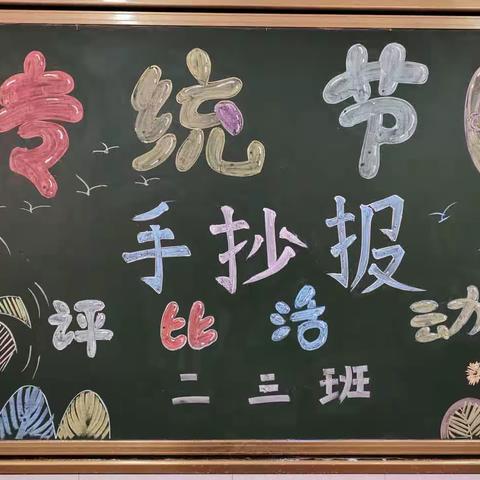 传统节
手抄报
评比活动
二三班